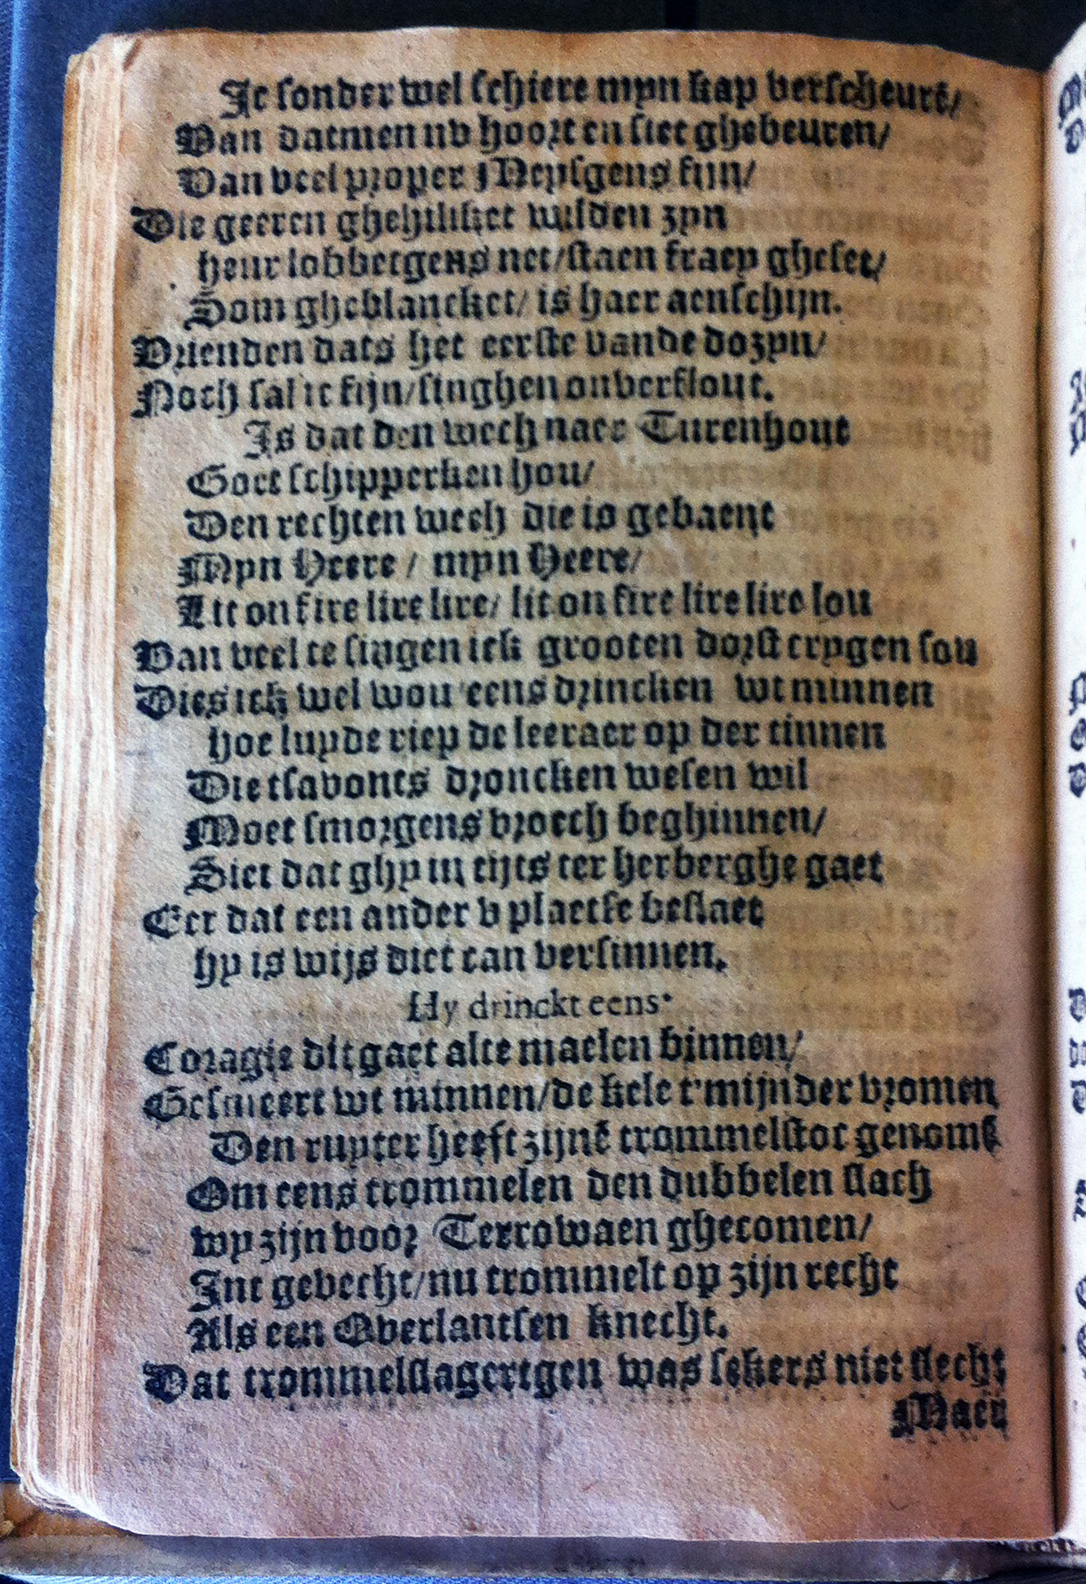 Ic sonder wel schiere myn kap verscheurẽ/
Van datmen nv hoort en siet ghebeuren/
Van veel proper Meysgens fijn/
Die geeren ghehilikct wilden zyn
heur lobbetgens net/staen fraey gheset/
Som gheblancket/ is haer aenschijn.
Vrienden dats het eerste vande dozyn/
Noch sal ic fijn/singhen onverflout.
Is dat den wech naer Turenhout
Goet schipperken hou/
Den rechten wech die is gebaent
Myn Heere / myn Heere/
Lit on fire lire lire/ lit on fire lire lire lou
Van veel te singen ick grooten dorst crygen sou
Dies ick wel wou eens drincken wt minnen
hoe luyde riep de leeraer op der tinnen
Die tsavonts droncken wesen wil
Moet smorgens vroech beghinnen/
Siet dat ghy in tijts ter herberghe gaet
Eer dat een ander v plaetse beslaet
hy is wijs diet can versinnen.
Hy drinckt eens.
Coragie dit gaet alte maelen binnen/
Gesmeert wt minnen/de kele t'mijnder vromen
Den ruyter heeft zijnẽ trommelstoc genomẽ
Om eens trommelen den dubbelen slach
wy zijn voor Terrowaen ghecomen/
Int gevecht/nu trommelt op zijn recht
Als een Overlantsen knecht.
Dat trommelslagertgen was sekers niet slecht
Maer